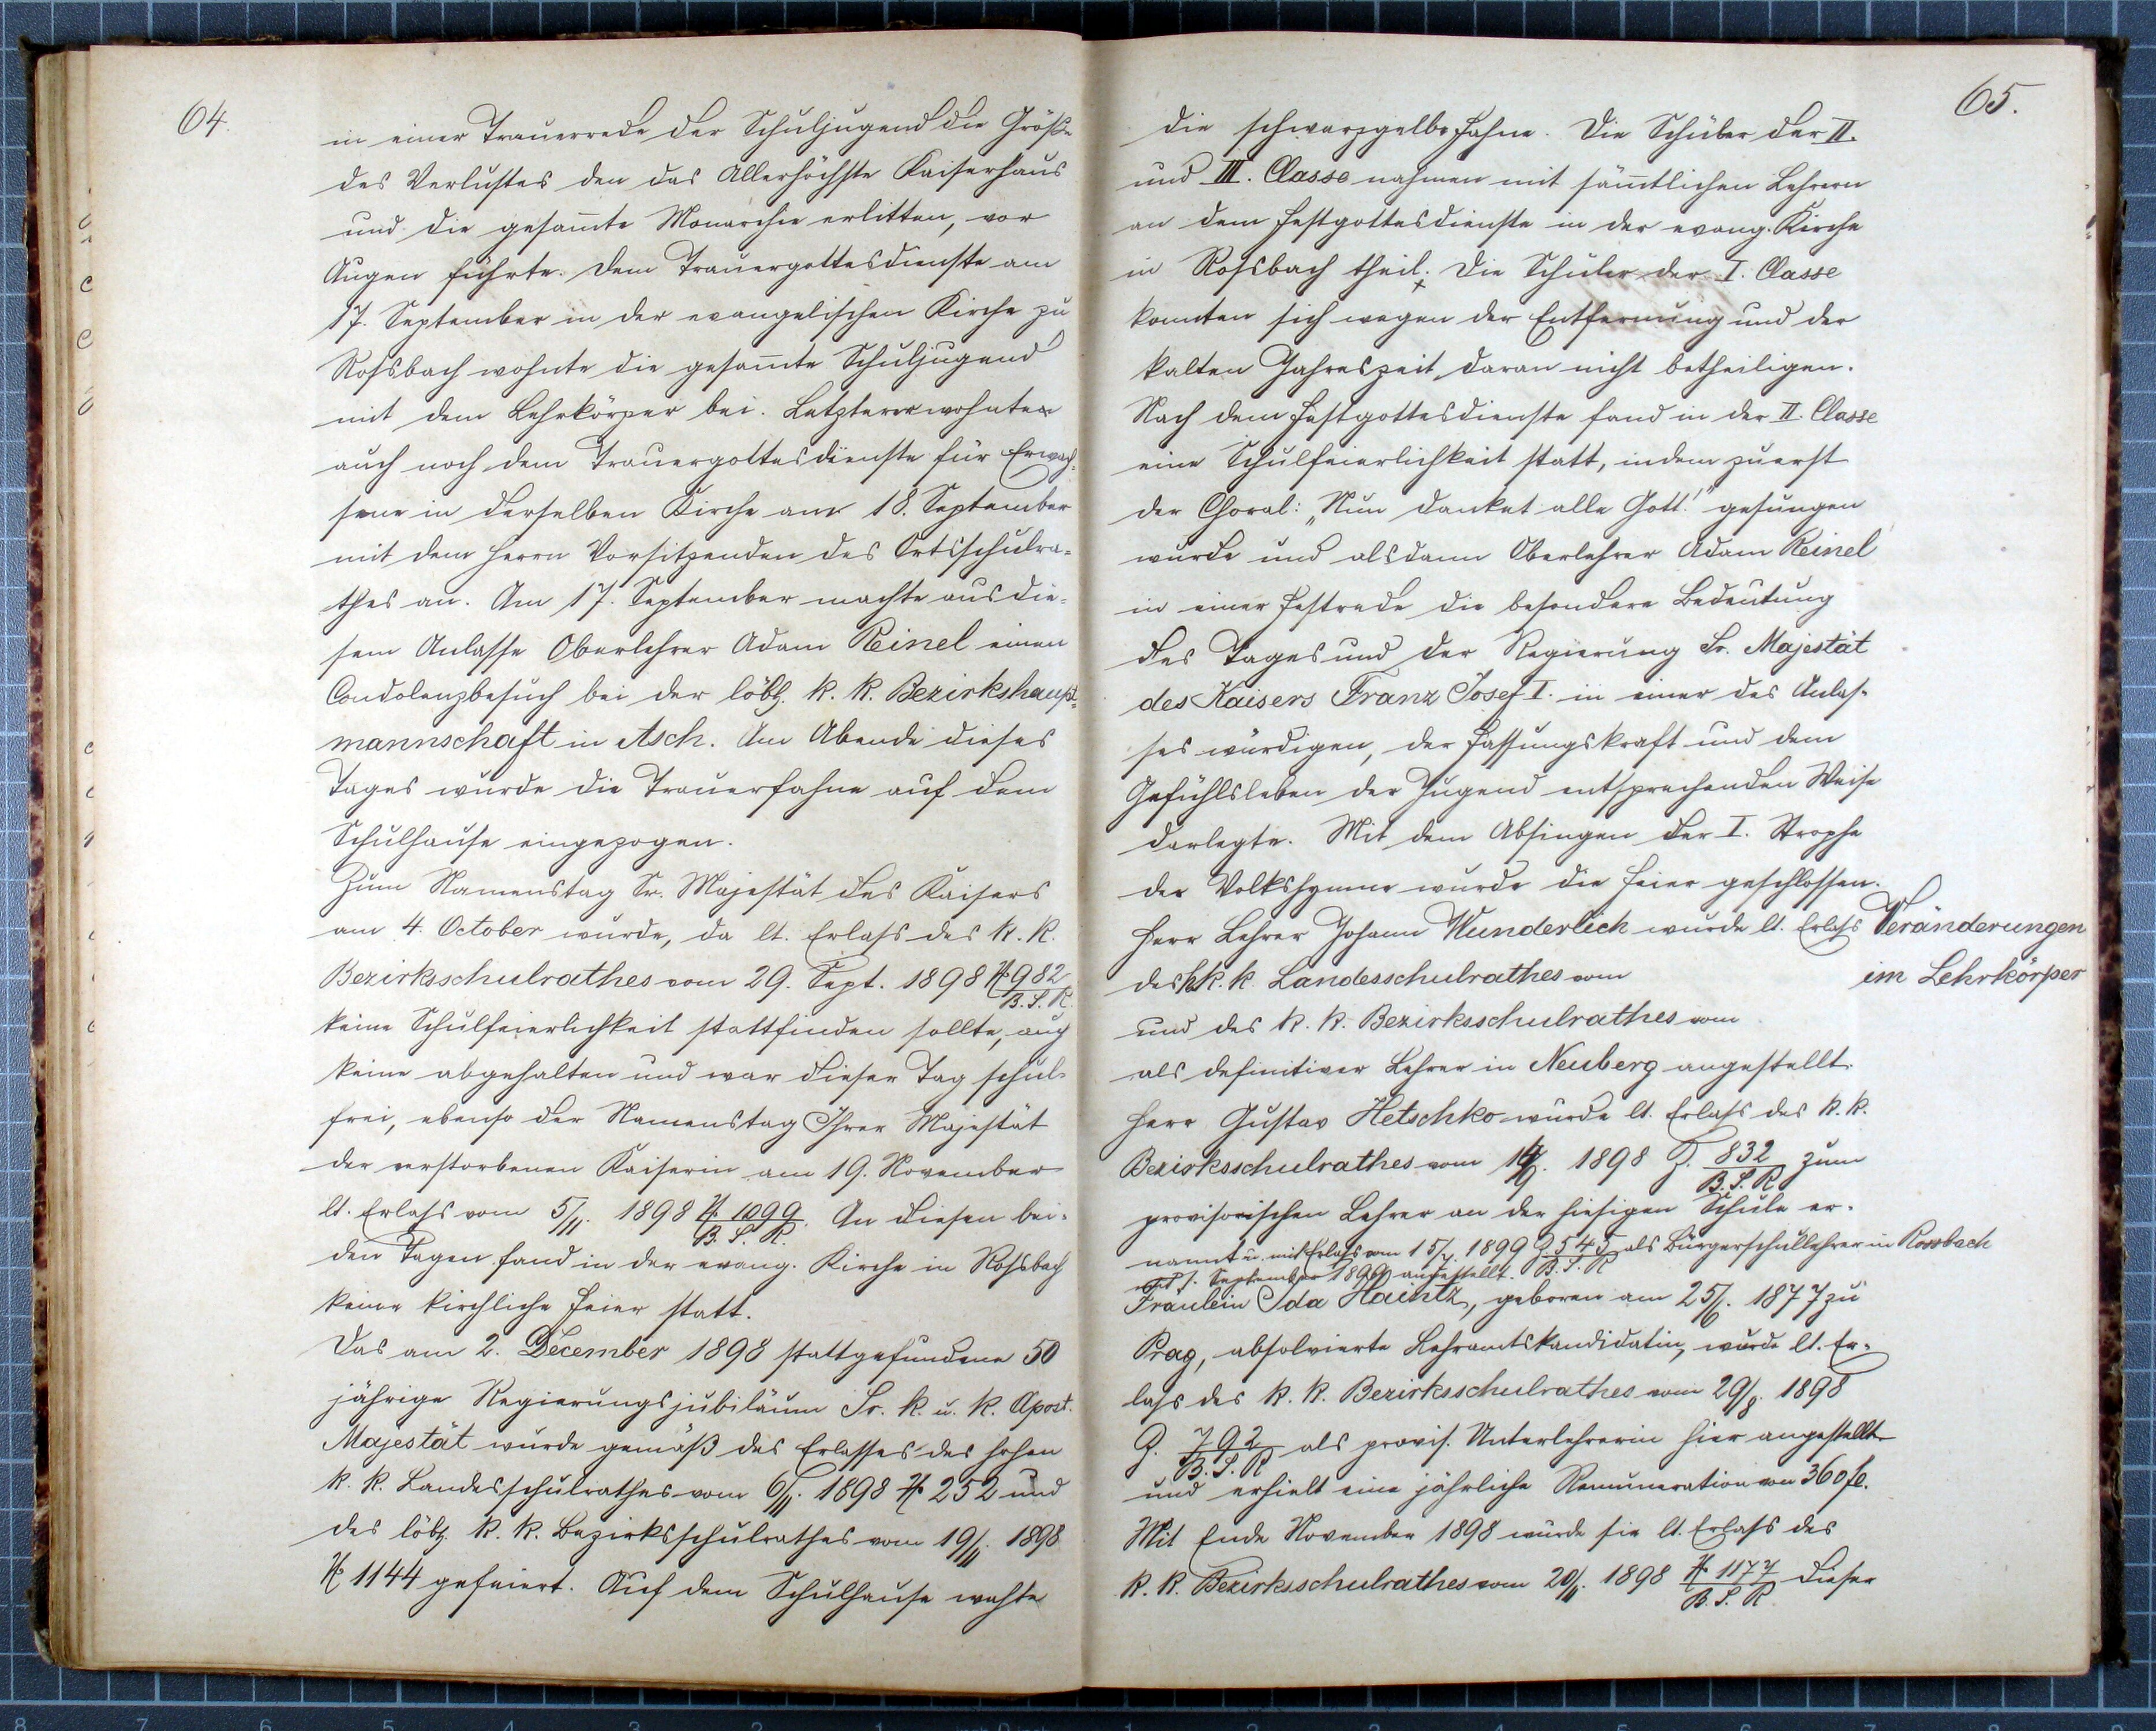 64.
in einer Trauerrede der Schuljugend die Größe
des Verlustes den das Allerhöchste Kaiserhaus
und die gesam̅te Monarchie erlitten, vor
Augen führte. Dem Trauergottesdienste am
17. September in der evangelischen Kirche zu
Roßbach wohnte die gesam̅te Schuljugend
mit dem Lehrkörper bei. Letzterer wohnte
auch noch dem Trauergottesdienste für Erwach-
sene in derselben Kirche am 18. September
mit dem Herrn Vorsitzenden des Ortsschulra-
thes an. Am 17. September machte aus die-
sem Anlasse Oberlehrer Adam Reinel einen
Condolenzbesuch bei der löbl. k. k. Bezirkshaupt-
mannschaft in Asch. Am Abende dieses
Tages wurde die Trauerfahne auf dem
Schulhause eingezogen.
Zum Namenstag Sr. Majestät des Kaisers
am 4. October wurde, da lt. Erlaß des k. k.
Bezirksschulrathes vom 29. Sept. 1898 № 982
B. S. R.
keine Schulfeierlichkeit stattfinden sollte, auch
keine abgehalten und war dieser Tag schul-
frei, ebenso der Namenstag Ihrer Majestät
der verstorbenen Kaiserin am 19. November
lt. Erlaß vom 5/11. 1898 № 1099. An diesen bei-
B. S. R.
den Tagen fand in der evang. Kirche in Roßbach
keine kirchliche Feier statt.
Das am 2. December 1898 stattgefundene 50
jährige Regierungsjubiläum Sr. k. u. k. Apost.
Majestät wurde gemäß des Erlasses des hohen
k. k. Landesschulrathes vom 6/11. 1898 № 252 und
des löbl. k. k. Bezirksschulrathes vom 19/11. 1898
№ 1144 gefeiert. Auf dem Schulhause wehte
65.
die schwarzgelbe Fahne. Die Schüler der II.
und III. Classe nahmen mit säm̅tlichen Lehrern
an dem Festgottesdienste in der evang. Kirche
in Roßbach theil. Die Schüler der I. Classe
konnten sich wegen der Entfernung und der
kalten Jahreszeit daran nicht betheiligen.
Nach dem Festgottesdienste fand in der II. Classe
eine Schulfeierlichkeit statt, indem zuerst
der Choral: „Nun danket alle Gott!" gesungen
wurde und alsdann Oberlehrer Adam Reinel
in einer Festrede die besondere Bedeutung
des Tages und der Regierung Sr. Majestät
des Kaisers Franz Josef I. in einer des Anlas-
ses würdigen, der Fassungskraft und dem
Gefühlsleben der Jugend entsprechenden Weise
darlegte. Mit dem Absingen der I. Strophe
der Volkshymne wurde die Feier geschlossen.
Herr Lehrer Johann Wunderlich wurde lt. Erlaß
Veränderungen
im Lehrkörper
des k. k. Landesschulrathes vom
und des k. k. Bezirksschulrathes vom
als definitiver Lehrer in Neuberg angestellt.
Herr Gustav Hetschko wurde lt. Erlaß des k. k.
Bezirksschulrathes vom 1898 Z. 832 zum
B. S. R.
provisorischen Lehrer an der hiesigen Schule er-
nannt u. mit Erlaß vom 15/7 1899 Z 545 als Bürgerschullehrer in Rossbach
B. S. R
mit 1. September 1899 angestellt.
Fräulein Ida Haintz, geboren am 25/6. 1877 zu
Prag, absolvierte Lehramtskandidatin, wurde lt. Er-
laß des k. k. Bezirksschulrathes vom 29/8. 1898
Z. 792 als provis. Unterlehrerin hier angestellt
B. S. R
und erhielt eine jährliche Remuneration von 360 fl.
Mit Ende November 1898 wurde sie lt. Erlaß des
k. k. Bezirksschulrathes vom 20/11. 1898 № 1177 dieser
B. S. R